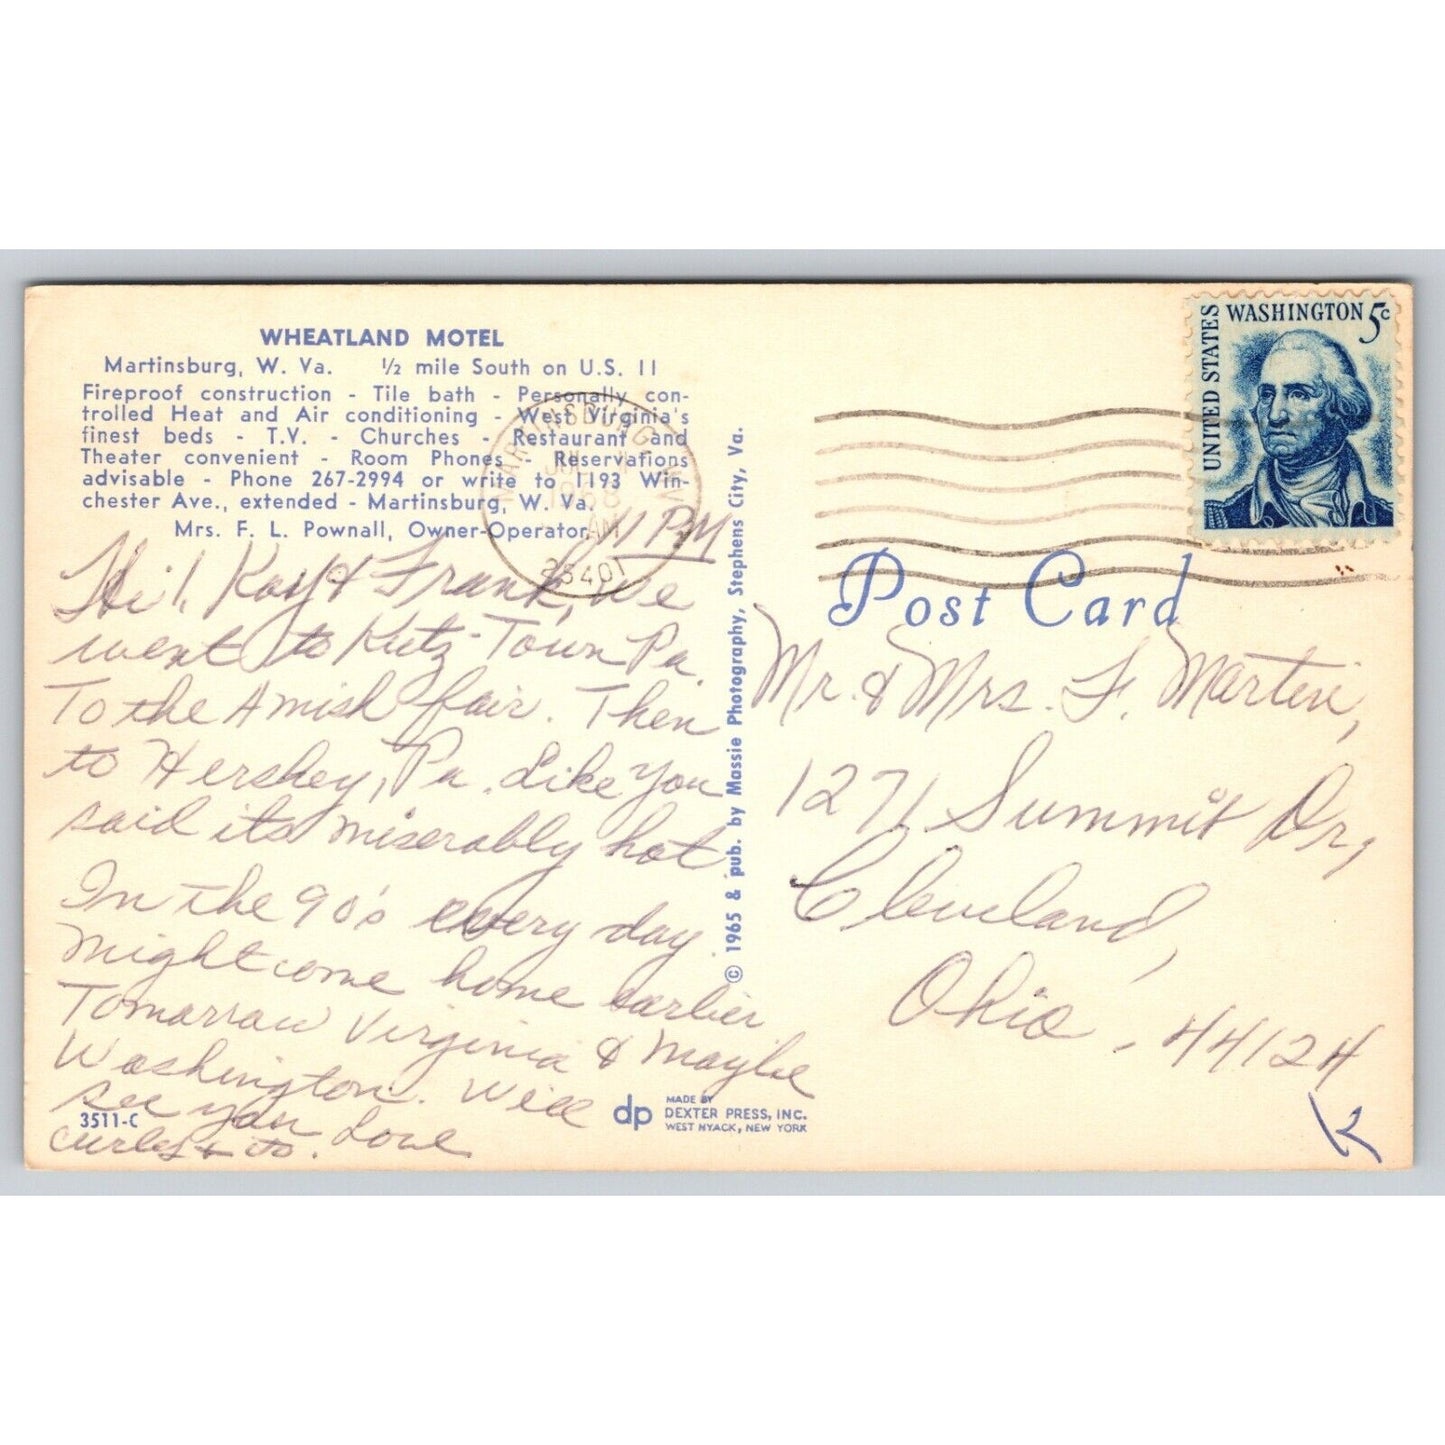 WHEATLAND MOTEL
Martinsburg, W. Va. ½ mile South on U.S. 11
Fireproof construction - Tile bath - Personally con-
trolled Heat and Air conditioning - West Virginia's
finest beds - T.V. - Churches - Restaurant and
Theater convenient - Room Phones - Reservations
advisable - Phone 267-2994 or write to 1193 Win-
chester Ave., extended - Martinsburg, W. Va.
Mrs. F. L. Pownall, Owner-Operator
MARTINSBURG W.V.
JUL
1968
AM
25401
11 PM
Hi!, Kay & Frank, We
went to Kutz-Town Pa.
To the Amish fair. Then
to Hershey, Pa. Like you
said its miserably hot
In the 90's every day.
Might come home earlier
Tomarraw Virginia & Maybe
Washington. Will
see you
Love
3511-C
© 1965 & pub. by Massie Photography, Stephens City, Va.
dp MADE BY
DEXTER PRESS, INC.
WEST NYACK, NEW YORK
UNITED STATES
WASHINGTON 5c
Post Card
Mr. & Mrs. F. Martin,
1271 Summit Dr,
Cleveland,
Ohio - 44124